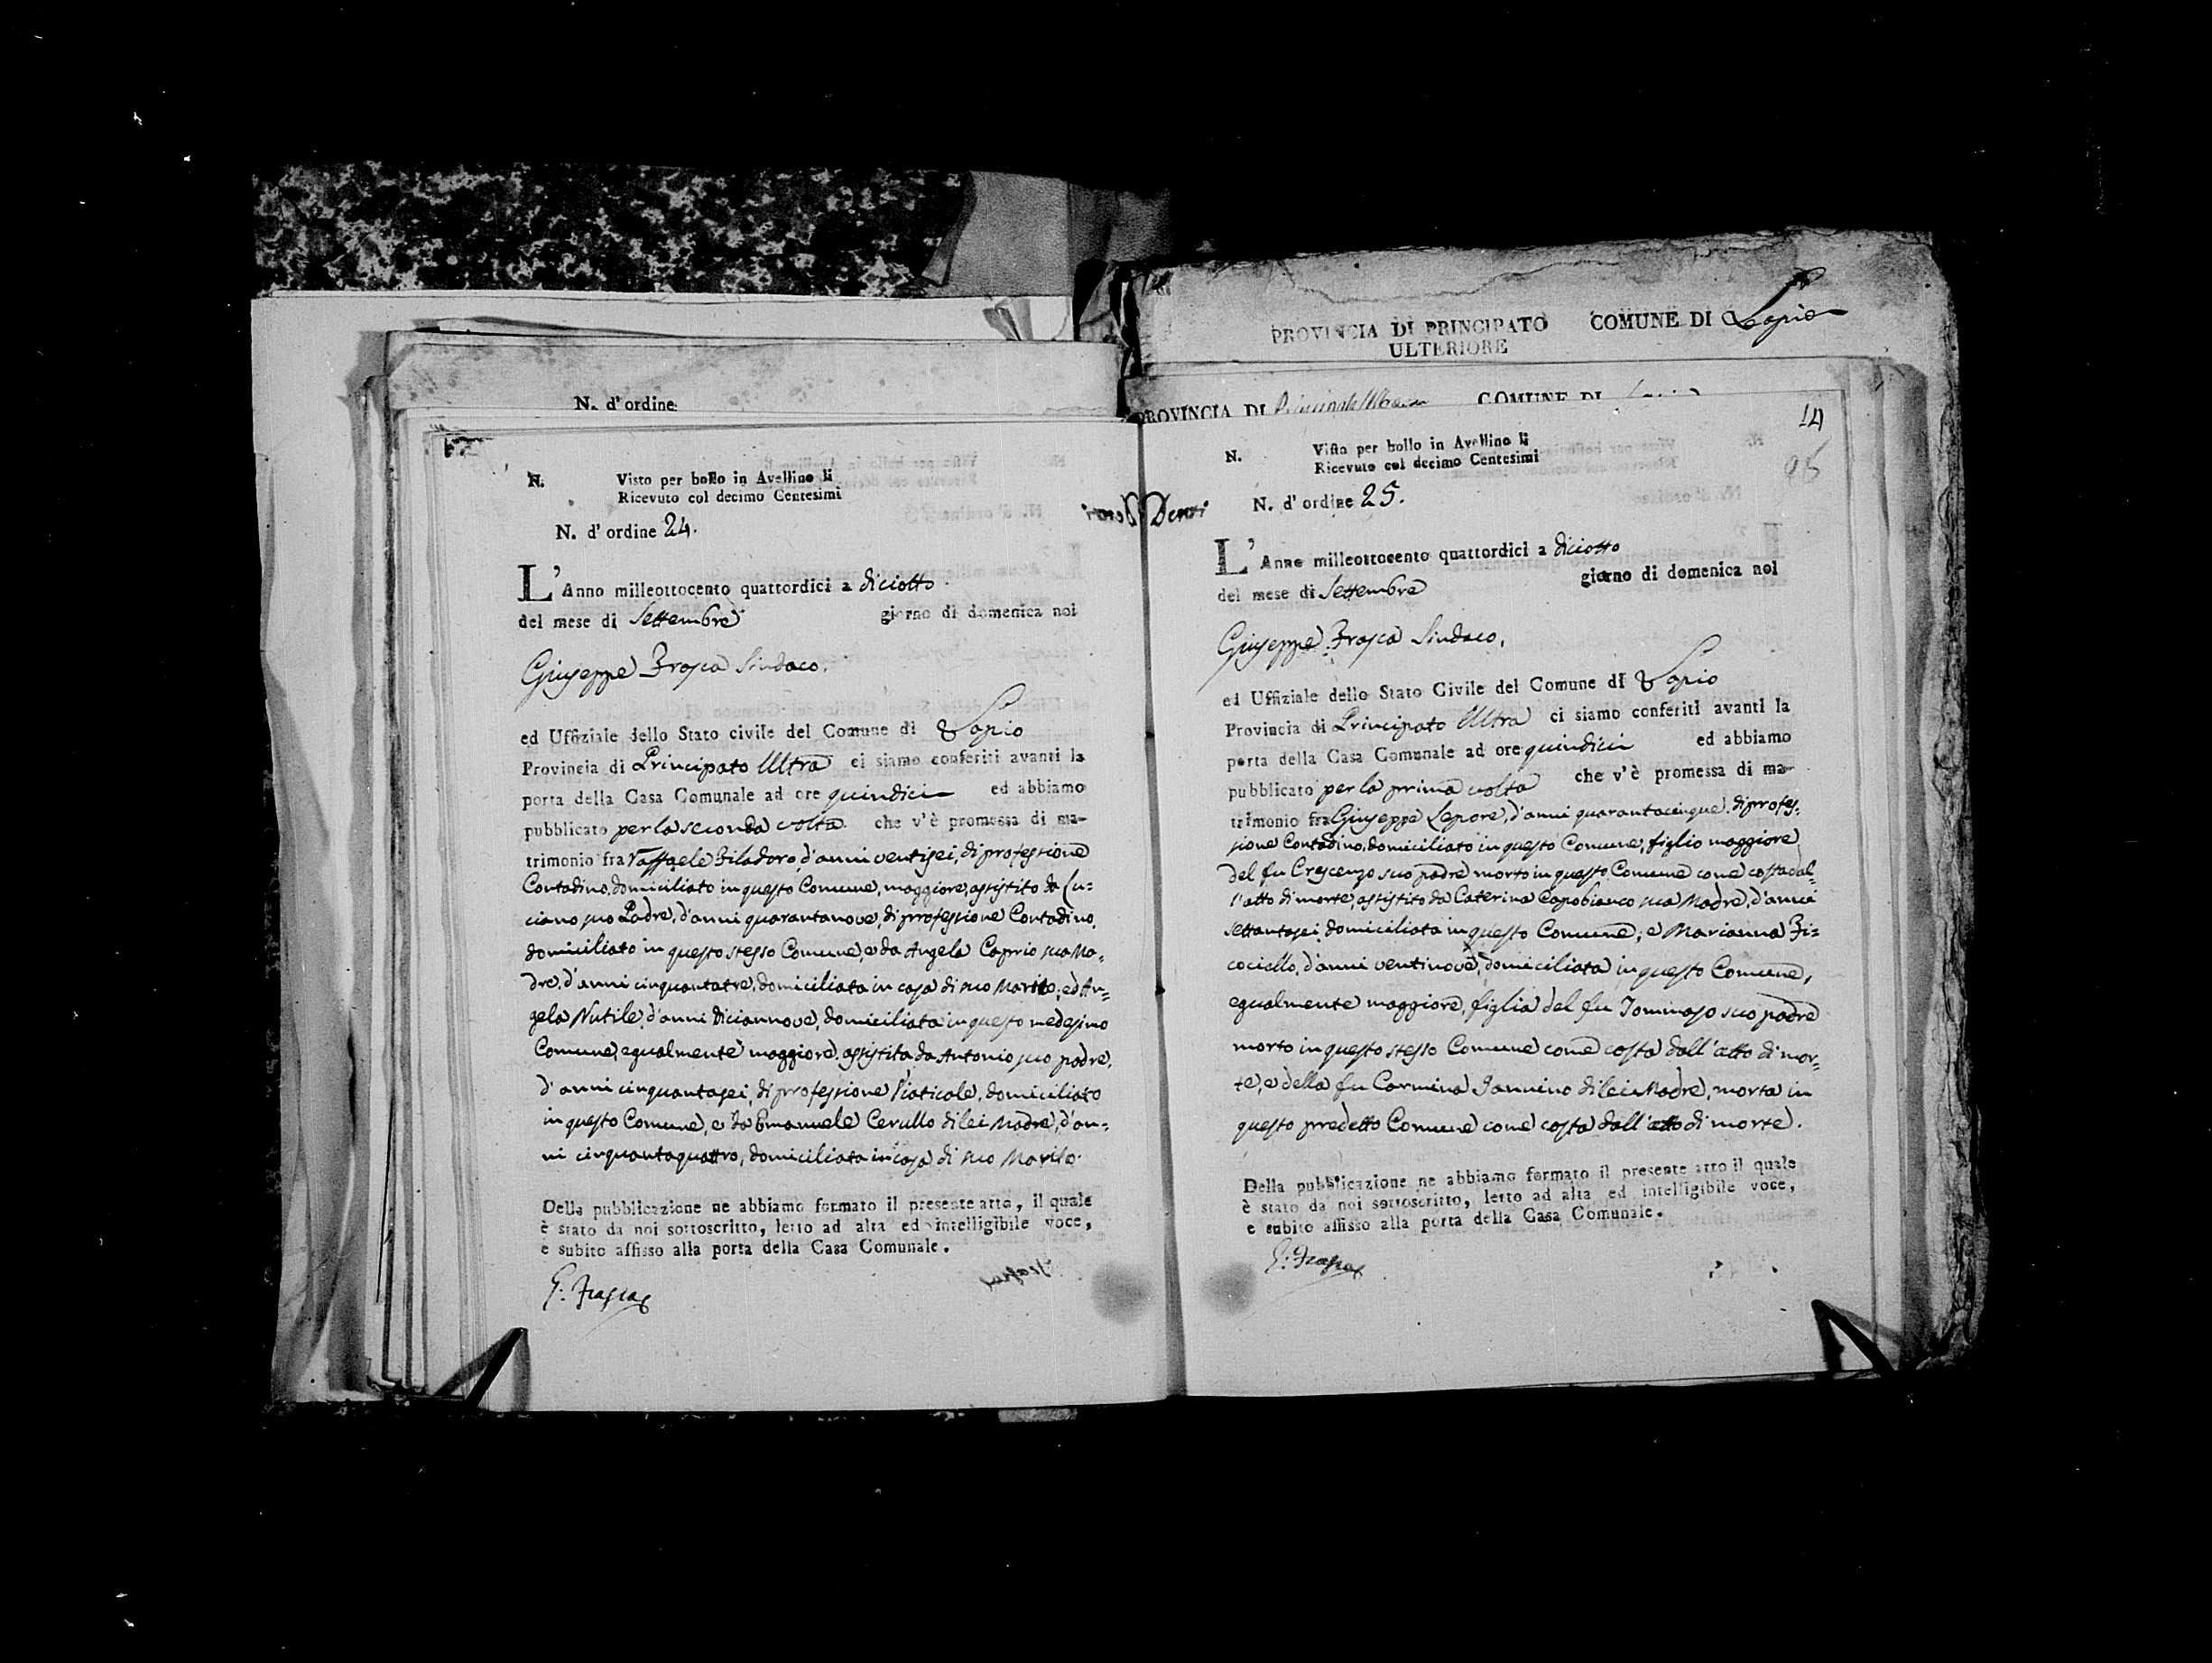 N. d' ordine
N. Visto per bollo in Avellino li
Ricevuto col decimo Centesimi
N. d' ordine 24.
L' Anno milleottocento quattordici a diciotto
del mese di Settembre giorno di domenica noi
Giuseppe Frasca Sindaco.
ed Uffiziale dello Stato civile del Comune di Lapio
Provincia di Principato Ultra ci siamo conferiti avanti la
porta della Casa Comunale ad ore quindici ed abbiamo
pubblicato per la seconda volta che v'è promessa di ma-
trimonio fra Raffaele Filadoro, d'anni ventisei, di professione
Contadino, domiciliato in questo Comune, maggiore, assistito da Lu=
ciano suo Padre, d'anni quarantanove, di professione Contadino,
domiciliato in questo stesso Comune, e da Angela Caprio sua Ma=
dre, d'anni cinquantatre, domiciliata in casa di suo Marito; ed An=
gela Nutile, d'anni diciannove, domiciliata in questo medesimo
Comune, egualmente maggiore, assistita da Antonio suo padre,
d'anni cinquantasei, di professione Viaticale, domiciliato
in questo Comune, e da Emanuele Cerullo di lei Madre, d'an=
ni cinquantaquattro, domiciliata in casa di suo Marito.
Della pubblicazione ne abbiamo formato il presente atto, il quale
è stato da noi sottoscritto, letto ad alta ed intelligibile voce,
e subito affisso alla porta della Casa Comunale.
G: Frasca
PROVINCIA DI PRINCIPATO COMUNE DI Lapio
ULTERIORE
PROVINCIA DI Principato Ultra COMUNE DI
14
N. Visto per bollo in Avellino li
Ricevuto col decimo Centesimi
N. d' ordine 25.
L' Anno milleottocento quattordici a diciotto
del mese di Settembre giorno di domenica noi
Giuseppe Frasca Sindaco.
ed Uffiziale dello Stato Civile del Comune di Lapio
Provincia di Principato Ultra ci siamo conferiti avanti la
porta della Casa Comunale ad ore quindici ed abbiamo
pubblicato per la prima volta che v'è promessa di ma-
trimonio fra Giuseppe Lepore, d'anni quarantacinque, di profes=
sione Contadino, domiciliato in questo Comune, figlio maggiore
del fu Crescenzo suo padre morto in questo Comune come costa dal=
l'atto di morte, assistito da Caterina Capobianco sua Madre, d'anni
settantasei, domiciliata in questo Comune; e Marianna Fi=
cociello, d'anni ventinove, domiciliata in questo Comune,
egualmente maggiore, figlia del fu Tommaso suo padre
morto in questo stesso Comune come costa dall'atto di mor=
te, e della fu Carmina Iannino di lei Madre, morta in
questo predetto Comune come costa dall'atto di morte.
Della pubblicazione ne abbiamo formato il presente atto il quale
è stato da noi sottoscritto, letto ad alta ed intelligibile voce,
e subito affisso alla porta della Casa Comunale.
G: Frasca